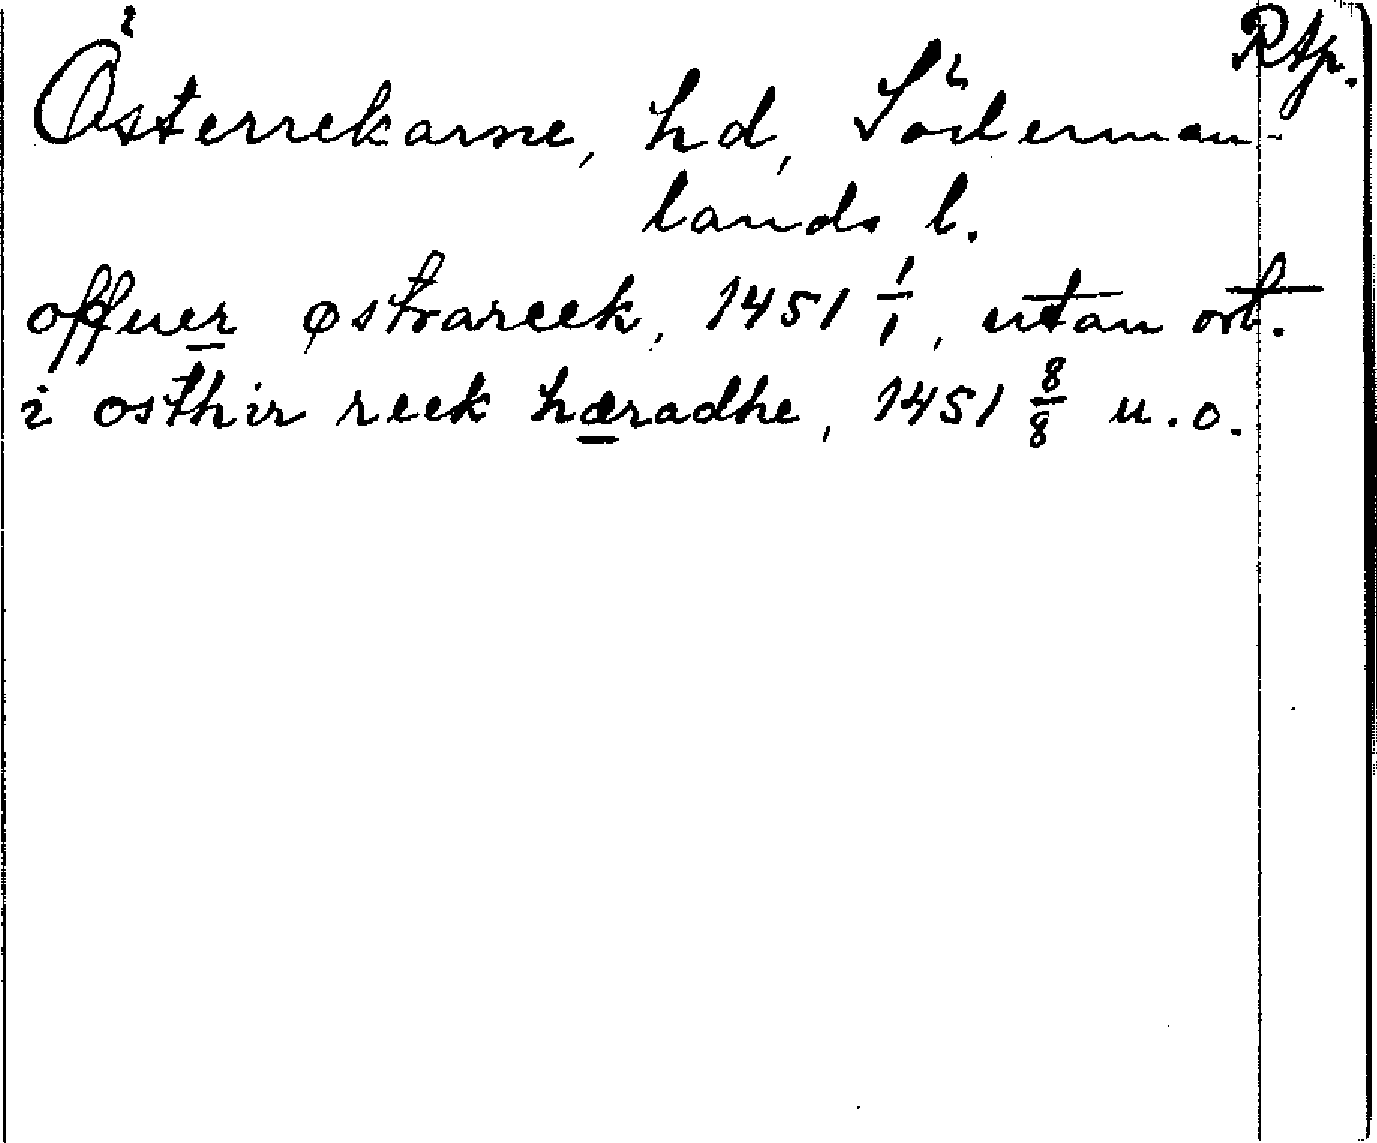 Rtp.
Österrekarne, hd, Söderman-
lands l.
offuer østrareek, 1451 1/1, utan ort.
i osthir reek hæradhe, 1451 8/8 u.o.